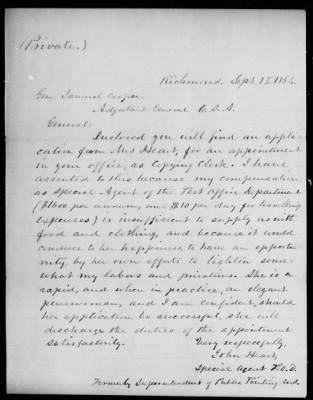 (Private.)
Richmond, Sept. 19, 1864.
Gen. Samuel Cooper,
Adjutant General C.S.A.
General:
Inclosed you will find an appli-
cation from Mrs Heart, for an appointment
in your office, as Copying Clerk. I have
assented to this because my compensation
as Special Agent of the Post Office Department
($1600 per annum, and $10 per day for travelling
expenses) is insufficient to supply us with
food and clothing, and because it would
conduce to her happiness, to have an opportu-
nity, by her own efforts to lighten some-
what my labors and privations. She is a
rapid, and when in practice, an elegant
penswoman, and I am confident, should
her application be successful, she will
discharge the duties of the appointment
satisfactorily.
Very respecfully,
John Heart,
Special Agent P.O.D.
Formerly Superintendent of Public Printing U.S.